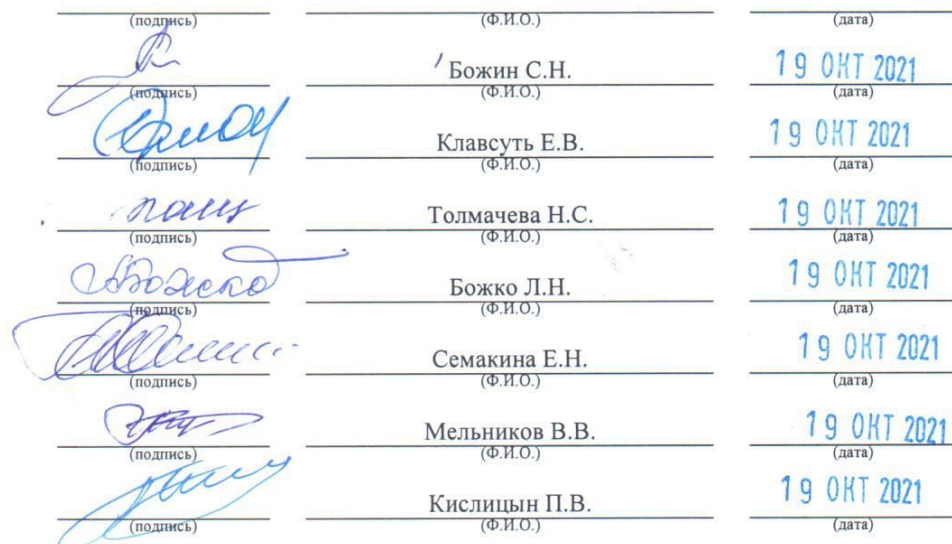 (подпись) (Ф.И.О.) (дата)
Божин С.Н. 19 ОКТ 2021
(подпись) (Ф.И.О.) (дата)
Клавсуть Е.В. 19 ОКТ 2021
(подпись) (Ф.И.О.) (дата)
Толмачева Н.С. 19 ОКТ 2021
(подпись) (Ф.И.О.) (дата)
Божко Л.Н. 19 ОКТ 2021
(подпись) (Ф.И.О.) (дата)
Семакина Е.Н. 19 ОКТ 2021
(подпись) (Ф.И.О.) (дата)
Мельников В.В. 19 ОКТ 2021
(подпись) (Ф.И.О.) (дата)
Кислицын П.В. 19 ОКТ 2021
(подпись) (Ф.И.О.) (дата)